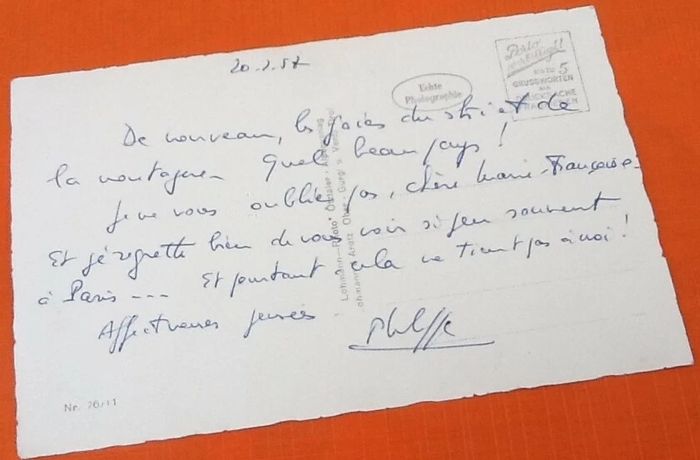 20.2.57
Porto
ermässigt!
bis zu 5
GRUSSWORTEN
als
DRUCKSACHE
FRANKIEREN
Echte
Photographie
De nouveau, les joies du ski et de
la montagne. Quel beau pays !
Je ne vous oublie pas, chère Marie-Françoise -
Et je regrette bien de vous voir si peu souvent
à Paris --- Et pourtant cela ne tient pas à moi !
Affectueuses pensées
Philippe
Lohmann-Photo Ötztaler
Lohmann Aratz Ober-Gurgl
Nr. 76/11